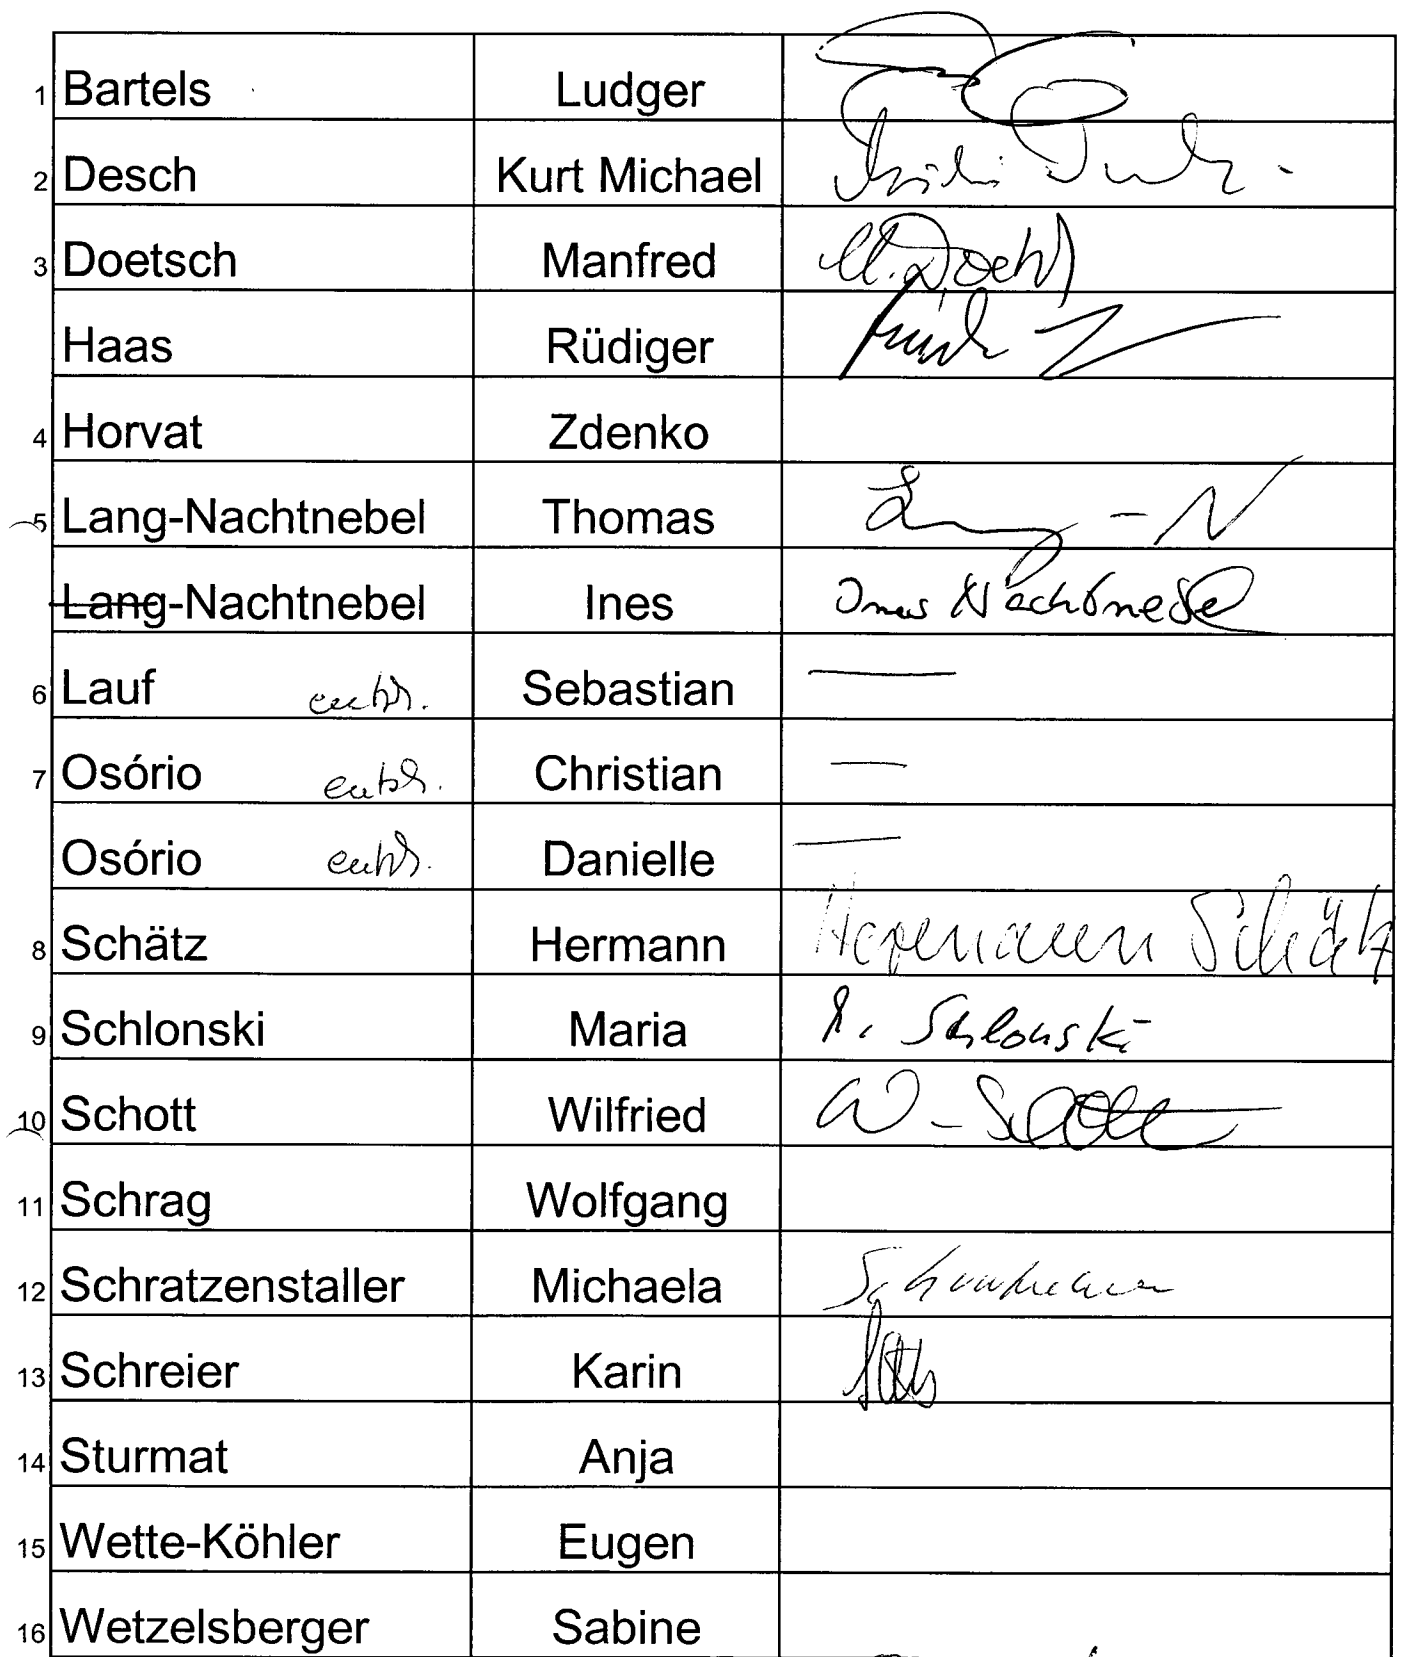 1 Bartels Ludger
2 Desch Kurt Michael
3 Doetsch Manfred M. Doetsch
Haas Rüdiger
4 Horvat Zdenko
5 Lang-Nachtnebel Thomas Lang - N
Lang-Nachtnebel Ines Ines Nachtnebel
6 Lauf entsch. Sebastian —
7 Osório entsch. Christian —
Osório entsch. Danielle —
8 Schätz Hermann Hermann Schätz
9 Schlonski Maria M. Schlonski
10 Schott Wilfried W. Schott
11 Schrag Wolfgang
12 Schratzenstaller Michaela
13 Schreier Karin
14 Sturmat Anja
15 Wette-Köhler Eugen
16 Wetzelsberger Sabine